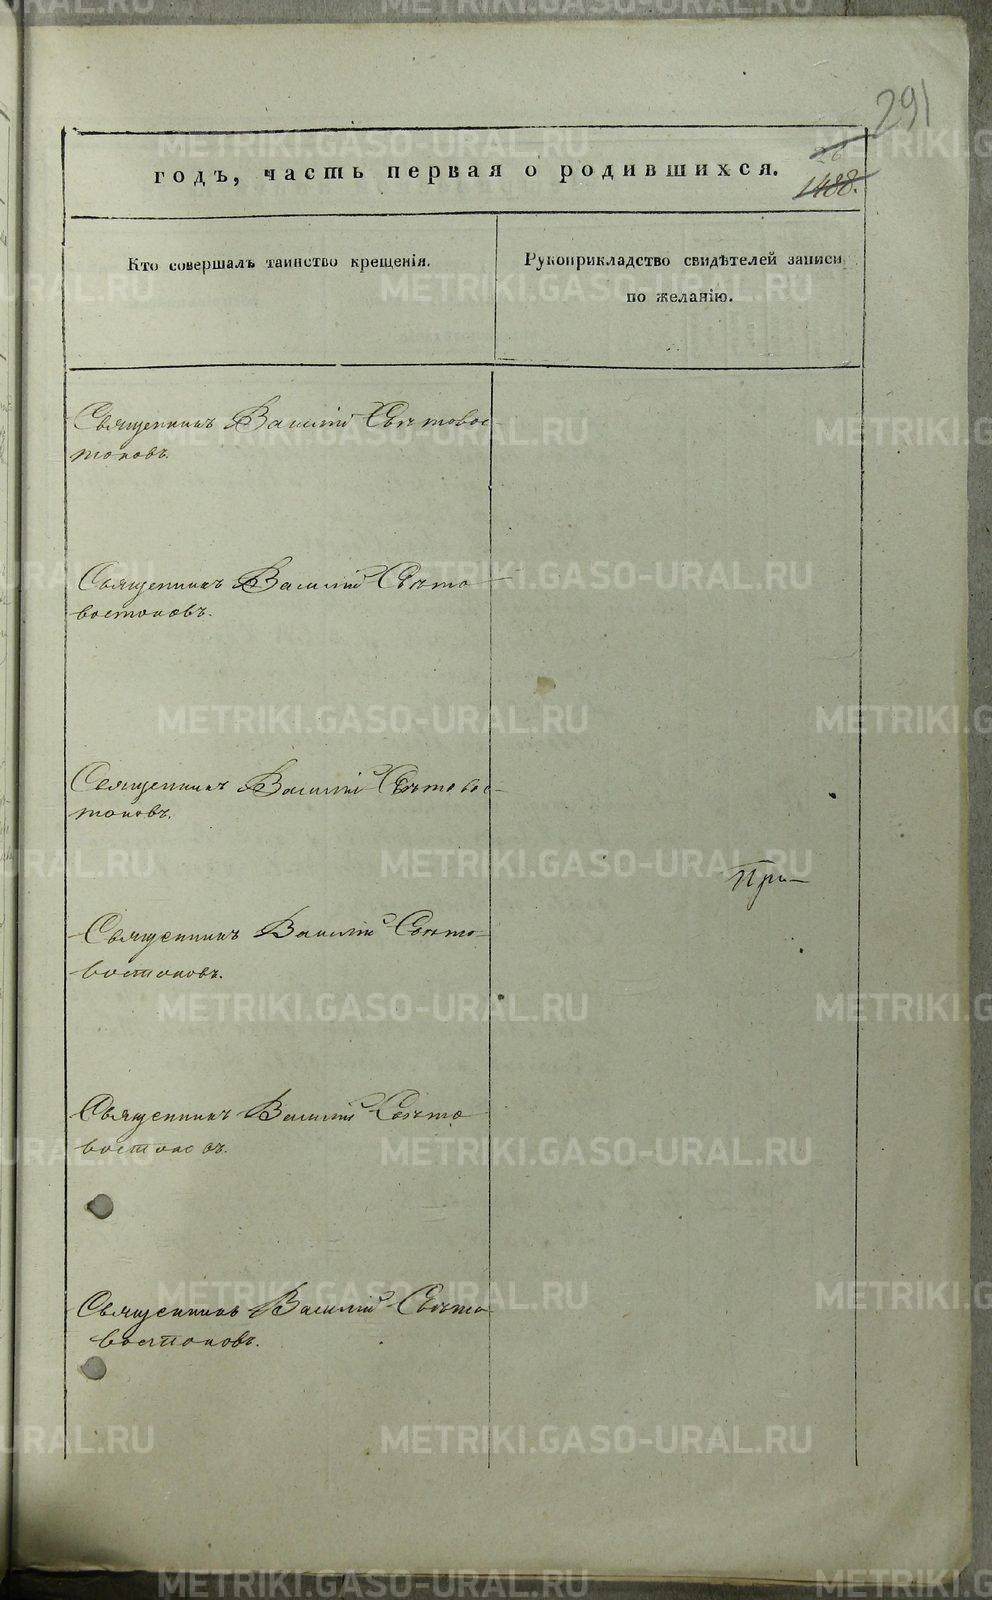 291
26
1488.
годъ, часть первая о родившихся.
Кто совершалъ таинство крещенія.
Рукоприкладство свидѣтелей записи
по желанію.
Священникъ Василій Свѣтовос-
токовъ.
Священникъ Василій Свѣто
востоковъ.
Священникъ Василій Свѣтовос-
токовъ.
При-
Священникъ Василій Свѣто-
востоковъ.
Священникъ Василій Свѣто
востоковъ.
Священникъ Василій Свѣто
востоковъ.
METRIKI.GASO-URAL.RU